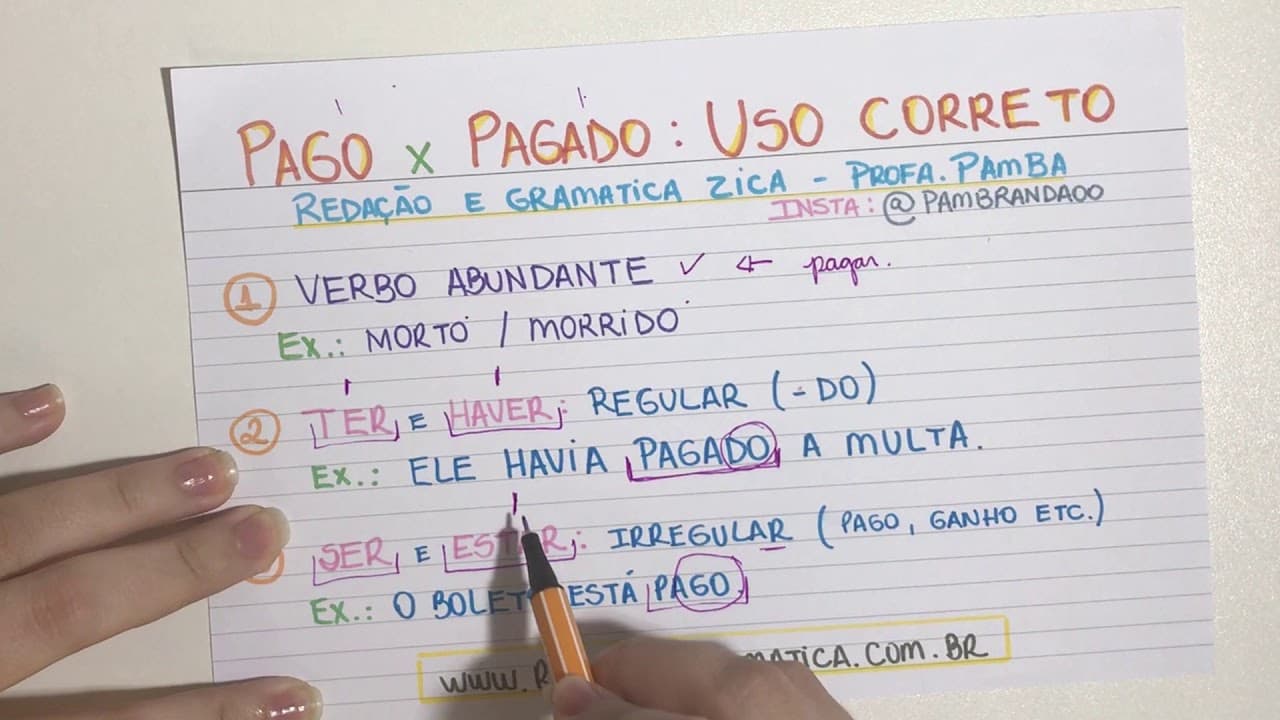 PAGO X PAGADO: USO CORRETO
REDAÇÃO E GRAMATICA ZICA - PROFA. PAMBA
INSTA: @PAMBRANDAOO
1 VERBO ABUNDANTE ✓ ← pagar.
EX.: MORTO / MORRIDO
2 TER E HAVER: REGULAR (-DO)
EX.: ELE HAVIA PAGADO A MULTA.
SER E ESTAR: IRREGULAR (PAGO, GANHO ETC.)
EX.: O BOLETO ESTÁ PAGO
WWW.R MATICA.COM.BR